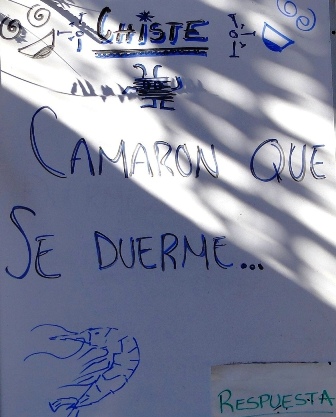 CHISTE
CAMARON QUE
SE DUERME...
RESPUESTA